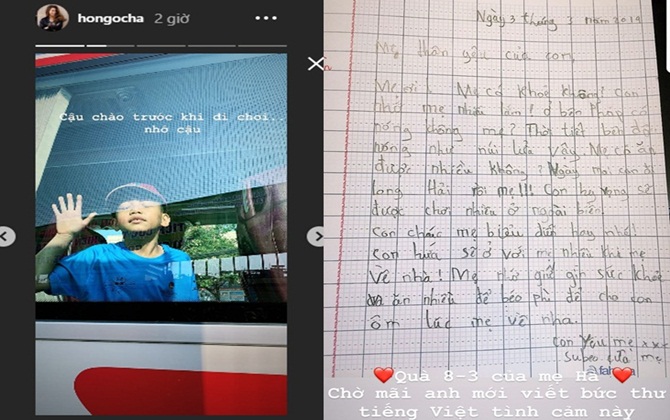 hongocha 2 giờ
Cậu chào trước khi đi chơi..
nhớ cậu
Ngày 3 tháng 3 năm 2019
Mẹ thân yêu của con,
Mẹ ơi! Mẹ có khoẻ không? Con
nhớ mẹ nhiều lắm! ở bên Pháp có
nóng không mẹ? Thời tiết bên
nóng như núi lửa vậy. Mẹ có ăn
được nhiều không? Ngày mai con đi
long Hải rồi mẹ!!! Con hy vọng sẽ
được chơi nhiều ở ngoài biển.
Con chúc mẹ biểu diễn hay nhé!
Con hứa sẽ ở với mẹ nhiều khi mẹ
về nhà! Mẹ nhớ giữ gìn sức khoẻ
ăn nhiều để béo phì để cho con
ôm lúc mẹ về nha.
Con yêu mẹ xxx
Subeo của mẹ
❤️Quà 8-3 của mẹ Hà❤️
Chờ mãi anh mới viết bức thư
tiếng Việt tình cảm này